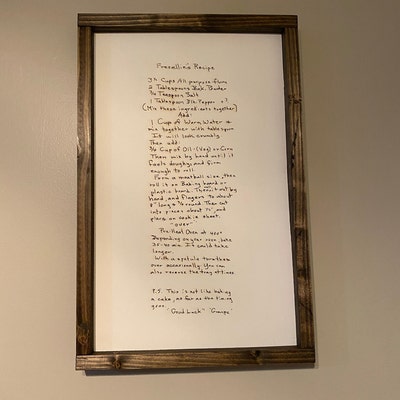 Frecellie's Recipe
3½ Cups All-purpose flour
2 Tablespoons Bak. Powder
¾ Teaspoon Salt
1 Tablespoon Blk. Pepper
(Mix these ingredients together)
Add:
1 Cup of Warm Water
mix together with tablespoon
It will look crumbly.
Then add:
¾ Cup of Oil-(Veg) or Corn
Then mix by hand until it
feels doughy and firm
enough to roll
Form a meatball size, then
roll it on Baking board or
plastic board. Then, by
hand, and fingers to about
long round. Then cut
into pieces about and
place on cookie sheet.
"over"
Pre-Heat Oven at 400°
Depending on your oven, bake
min. It could take
longer.
With a spatula turn them
over occasionally. You can
also reverse the tray at times
P.S. This is not like baking
a cake, as far as the timing
goes.
"Good Luck" "Grampa"